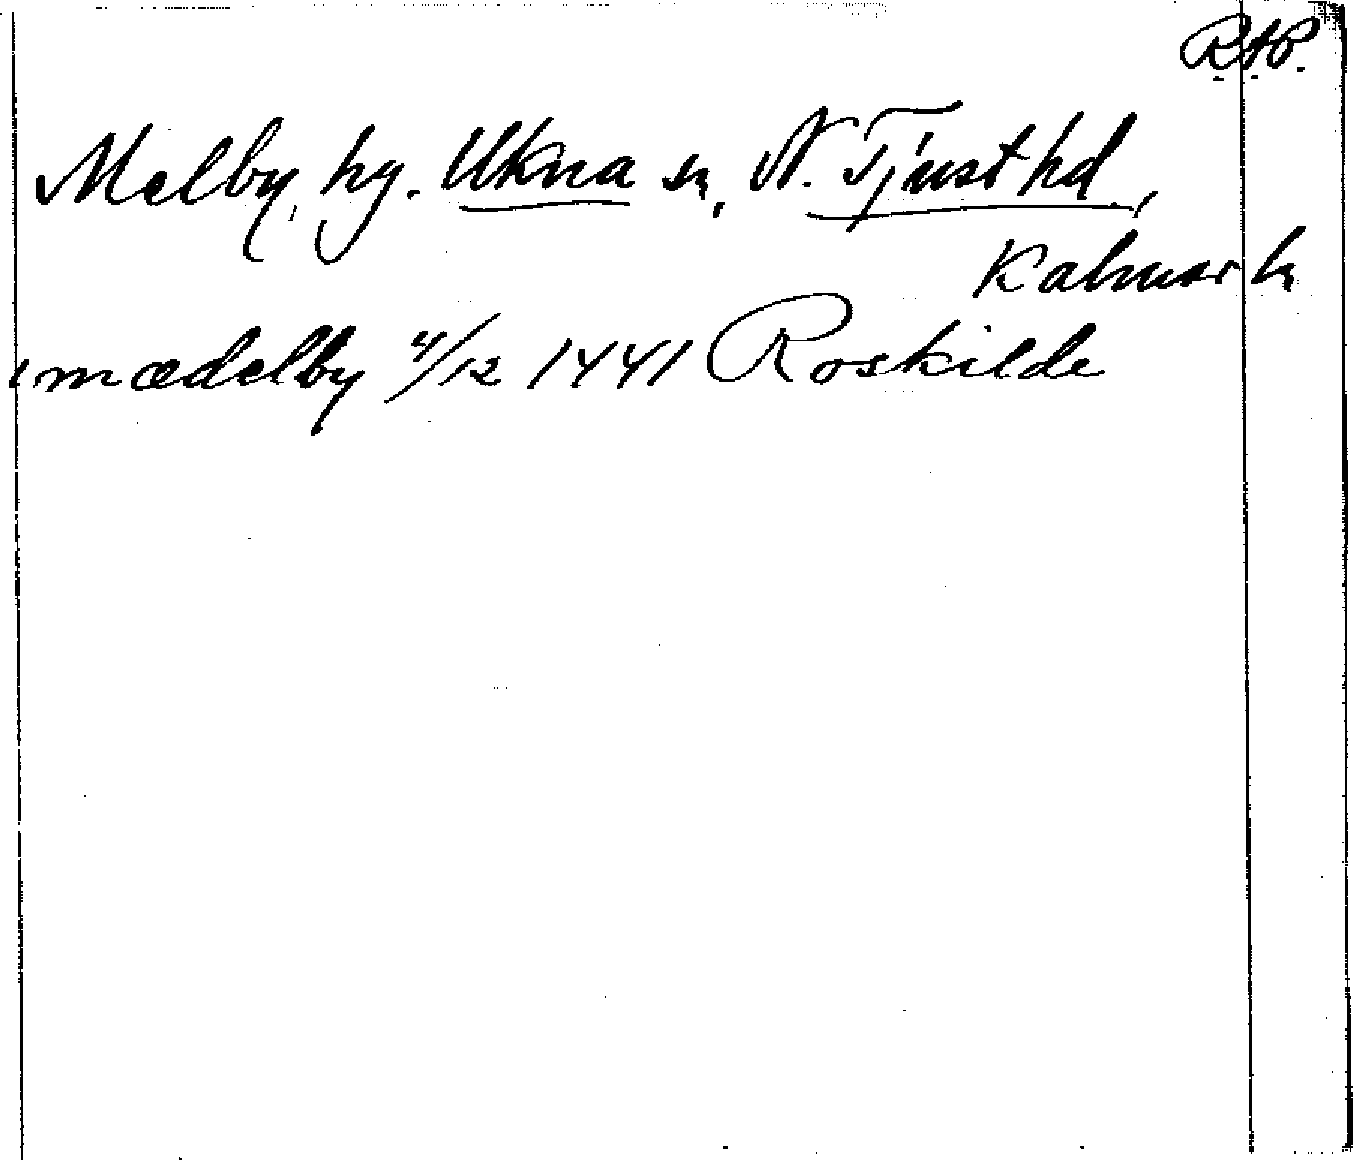 RAP.
Melby, hg. Ukna sn, N. Tjust hd,
Kalmar ln
i mædelby 4/12 1441 Roskilde